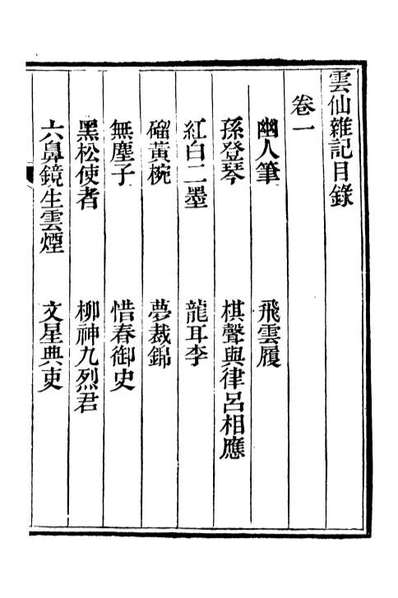 雲仙雜記目錄
卷一
幽人筆 飛雲履
孫登琴 棋聲與律呂相應
紅白二墨 龍耳李
磂黃椀 夢裁錦
無塵子 惜春御史
黑松使者 柳神九烈君
六鼻鏡生雲煙 文星典吏